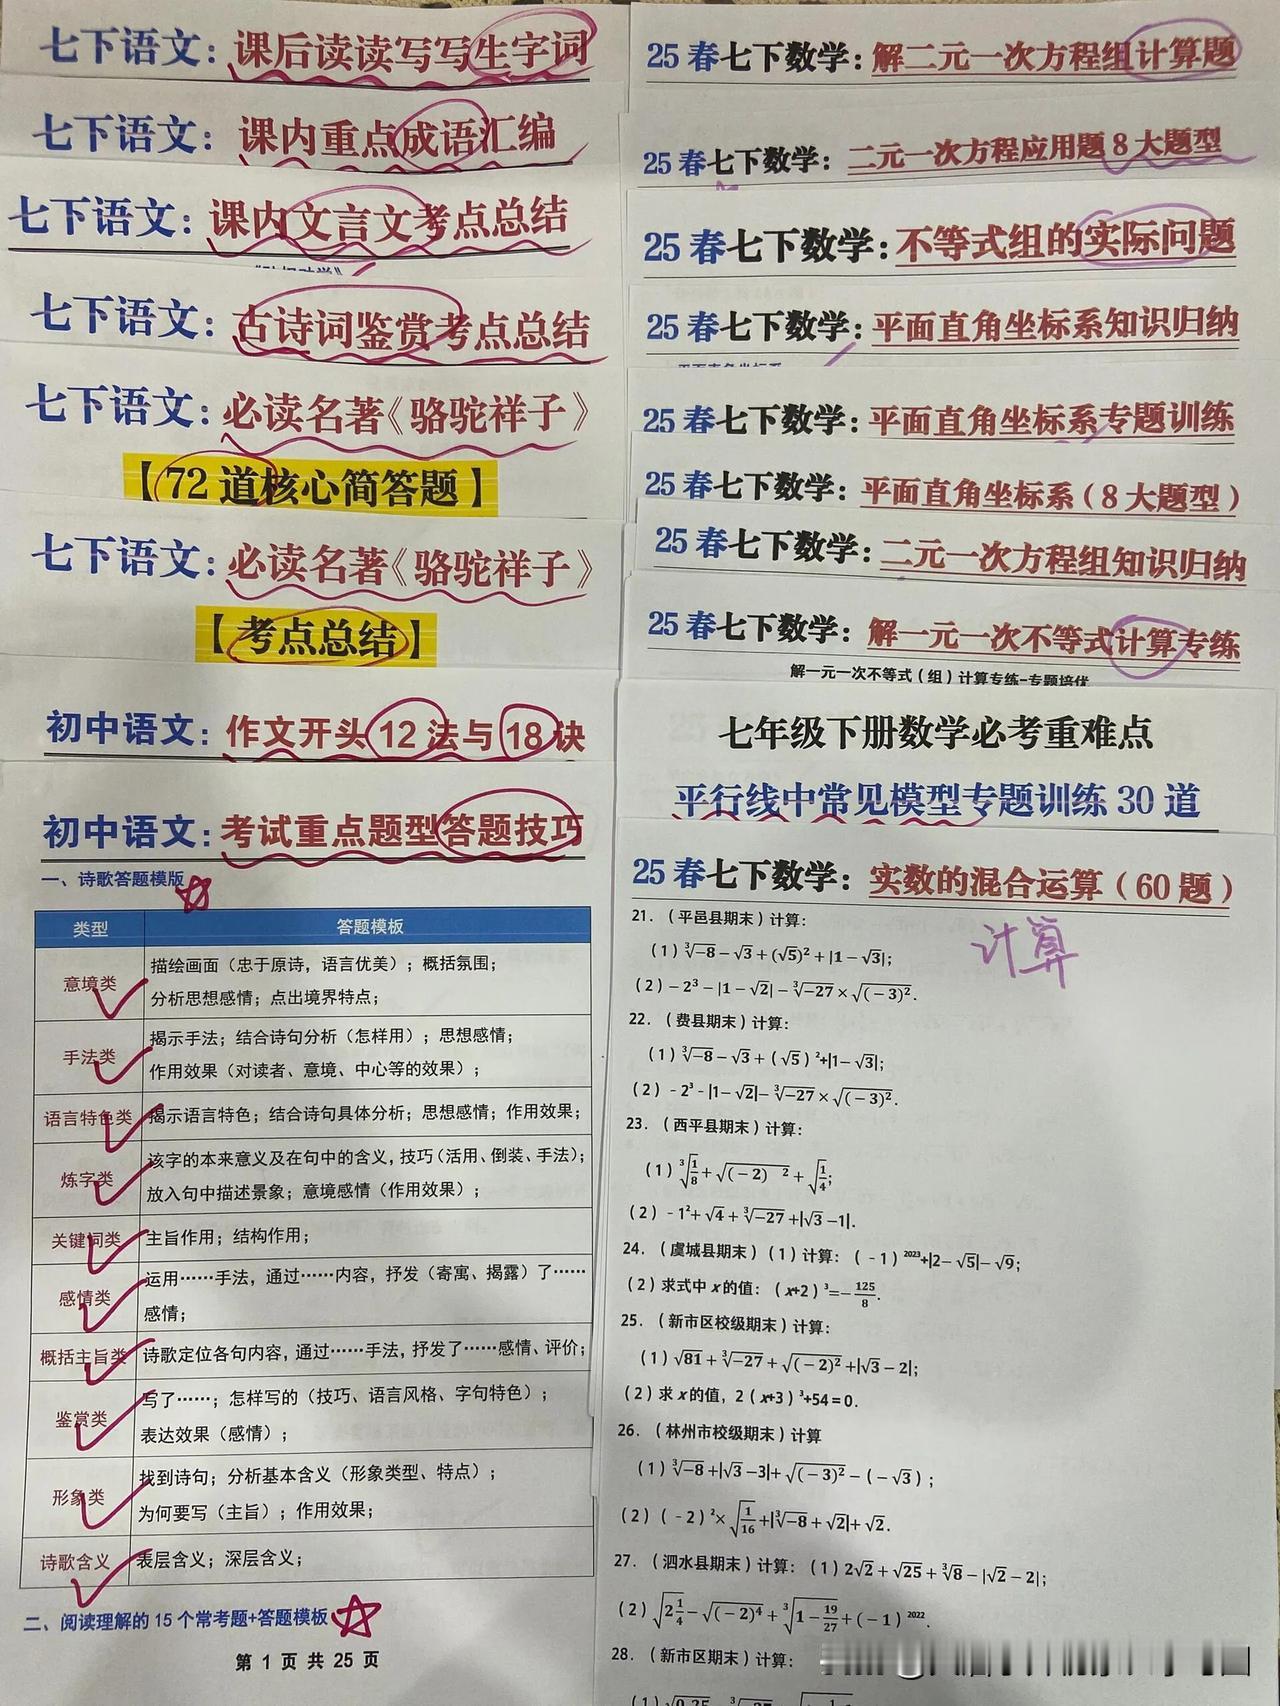 七下语文：课后读读写写生字词
七下语文：课内重点成语汇编
七下语文：课内文言文考点总结
七下语文：古诗词鉴赏考点总结
七下语文：必读名著《骆驼祥子》
【72道核心简答题】
七下语文：必读名著《骆驼祥子》
【考点总结】
初中语文：作文开头12法与18诀
初中语文：考试重点题型答题技巧
一、诗歌答题模版
类型 答题模板
意境类 描绘画面（忠于原诗，语言优美）；概括氛围；
分析思想感情；点出境界特点；
手法类 揭示手法；结合诗句分析（怎样用）；思想感情；
作用效果（对读者、意境、中心等的效果）；
语言特色类 揭示语言特色；结合诗句具体分析；思想感情；作用效果；
炼字类 该字的本来意义及在句中的含义，技巧（活用、倒装、手法）；
放入句中描述景象；意境感情（作用效果）；
关键词类 主旨作用；结构作用；
感情类 运用……手法，通过……内容，抒发（寄寓、揭露）了……
感情；
概括主旨类 诗歌定位各句内容，通过……手法，抒发了……感情、评价；
鉴赏类 写了……；怎样写的（技巧、语言风格、字句特色）；
表达效果（感情）；
形象类 找到诗句；分析基本含义（形象类型、特点）；
为何要写（主旨）；作用效果；
诗歌含义 表层含义；深层含义；
二、阅读理解的15个常考题+答题模板
第 1 页 共 25 页
25春七下数学：解二元一次方程组计算题
25春七下数学：二元一次方程应用题8大题型
25春七下数学：不等式组的实际问题
25春七下数学：平面直角坐标系知识归纳
25春七下数学：平面直角坐标系专题训练
25春七下数学：平面直角坐标系（8大题型）
25春七下数学：二元一次方程组知识归纳
25春七下数学：解一元一次不等式计算专练
解一元一次不等式（组）计算专练-专题培优
七年级下册数学必考重难点
平行线中常见模型专题训练30道
25春七下数学：实数的混合运算（60题）
计算
21.（平邑县期末）计算：
（1）∛-8－√3＋(√5)²＋|1－√3|；
（2）－2³－|1－√2|－∛-27×√(-3)².
22.（费县期末）计算：
（1）∛-8－√3＋（√5）²+|1－√3|；
（2）－2³－|1－√2|－∛-27×√(-3)².
23.（西平县期末）计算：
（1）∛(1/8)＋√(-2)²＋√(1/4)；
（2）－1²＋√4＋∛-27＋|√3－1|.
24.（虞城县期末）（1）计算：（－1）²⁰²³+|2－√5|－√9；
（2）求式中x的值：（x+2）³＝－125/8.
25.（新市区校级期末）计算：
（1）√81＋∛-27＋√(-2)²＋|√3－2|；
（2）求x的值，2（x+3）³+54＝0.
26.（林州市校级期末）计算
（1）∛-8＋|√3－3|＋√(-3)²－(－√3)；
（2）（－2）²×√(1/16)＋|∛-8＋√2|＋√2.
27.（泗水县期末）计算：（1）2√2＋√25＋∛8－|√2－2|；
（2）√(2 1/4)－√(-2)⁴＋∛(1－19/27)＋(－1)²⁰²².
28.（新市区期末）计算：